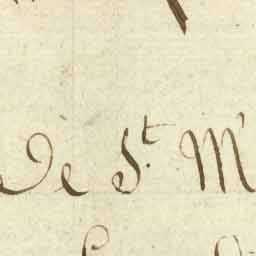 De S.t M